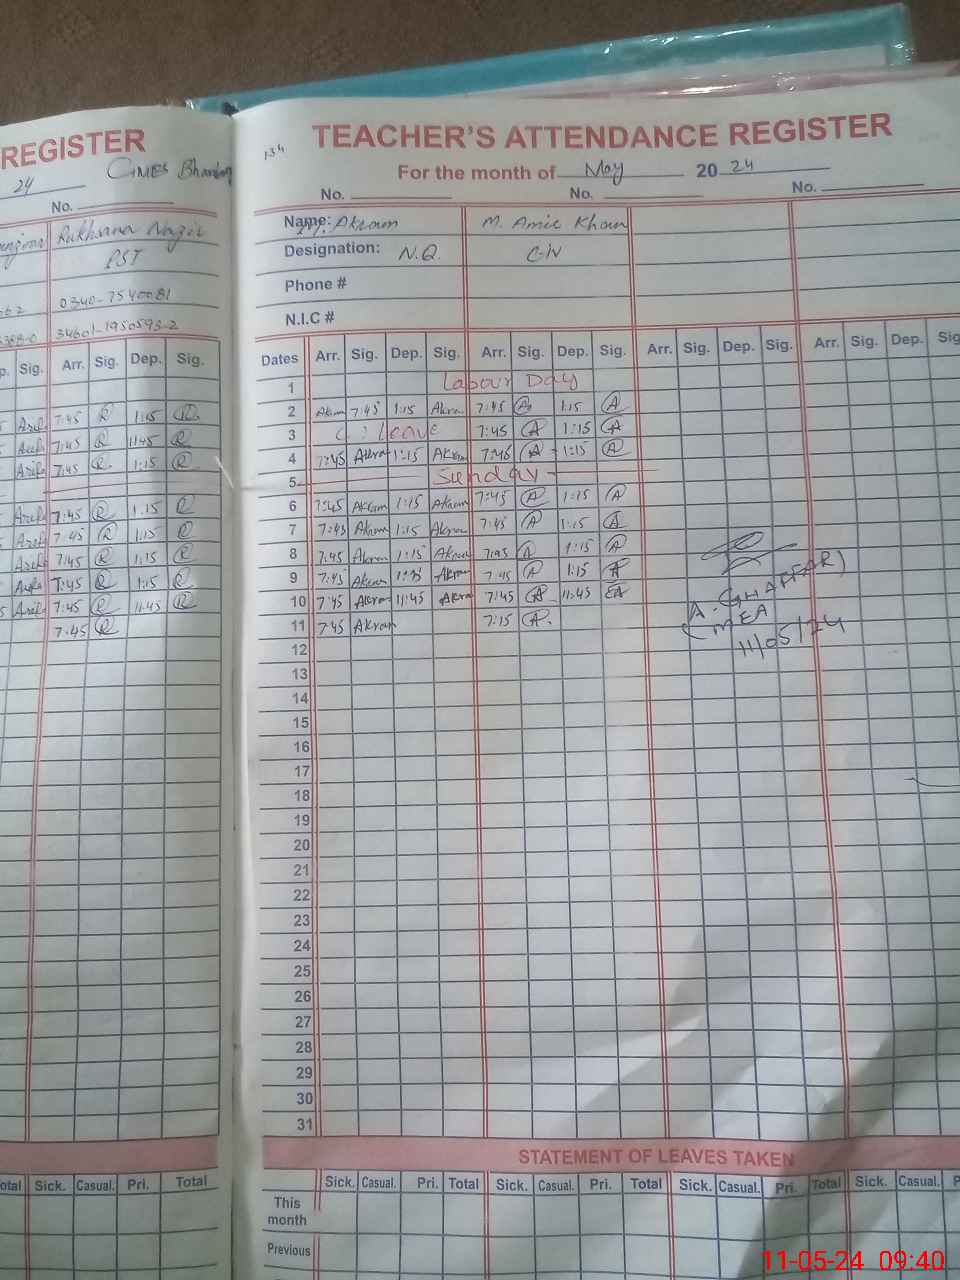 REGISTER
24 GMES
No.
Rukhsana Nazir
PST
0340-7540081
34601-1950593-2
p. Sig. Arr. Sig. Dep. Sig.
7:45 R 1:15 R
7:45 R 11:45 R
7:45 R 1:15 R
7:45 R 1:15 R
7:45 R 1:15 R
7:45 R 1:15 R
7:45 R 1:15 R
7:45 R 11:45 R
7:45 R
otal Sick. Casual. Pri. Total
134
TEACHER'S ATTENDANCE REGISTER
For the month of May 2024
No. No. No.
Name: M. Akram M. Amir Khan
Designation: N.Q.
Phone #
N.I.C #
Dates Arr. Sig. Dep. Sig. Arr. Sig. Dep. Sig. Arr. Sig. Dep. Sig. Arr. Sig. Dep. Sig
1 Labour Day
2 Akram 7:45 1:15 Akram 7:45 A 1:15 A
3 C. Leave 7:45 A 1:15 A
4 7:45 Akram 1:15 Akram 7:45 A 1:15 A
5 Sunday
6 7:45 Akram 1:15 Akram 7:45 A 1:15 A
7 7:45 Akram 1:15 Akram 7:45 A 1:15 A
8 7:45 Akram 1:15 Akram 7:45 A 1:15 A
9 7:45 Akram 1:15 Akram 7:45 A 1:15 A
10 7:45 Akram 11:45 Akram 7:45 A 11:45 A
11 7:45 Akram 7:15 A
A. GHAFFAR)
(MEA
11/05/24
12
13
14
15
16
17
18
19
20
21
22
23
24
25
26
27
28
29
30
31
STATEMENT OF LEAVES TAKEN
Sick. Casual. Pri. Total Sick. Casual. Pri. Total Sick. Casual. Pri. Total Sick. Casual. P
This month
Previous
11-05-24 09:40